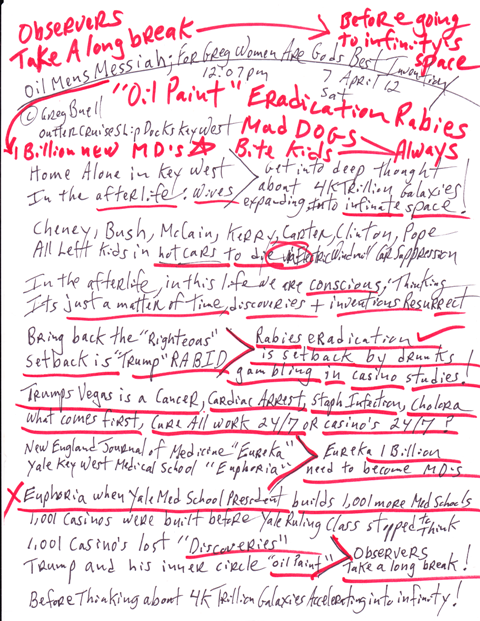 OBSERVERS
Take A long break
Before going
to infinity's
space
Oil Mens Messiah; for Greg Women Are Gods Best Invention
12:07pm 7 April 12
Sat
"Oil Paint" Eradication Rabies
© Greg Buell
outter Cruise Ship Docks Key West
Mad DOGS
1 Billion new MD's
Bite kids Always
Home Alone in Key West
In the afterlife! Wives
Get into deep thought
about 4K Trillion Galaxies
expanding into infinate space!
Cheney, Bush, McCain, Kerry, Carter, Clinton, Pope
All left kids in hot cars to die via Electric Windmill Car Suppression
In the afterlife, in this life we are conscious; Thinking
Its just a matter of time, discouries + inventions Resurrect
Bring back the "Righteoas"
setback is "Trump" RABID
Rabies eradication
is setback by drunks!
gambling in casino studies!
Trumps Vegas is a Cancer, Cardiac Arrest, Staph Infection, Cholora
What comes first, Cure All work 24/7 or casino's 24/7?
New England Journal of Medicine "Eureka"
Yale Key West Medical School "Euphoria"
Eureka 1 Billion
need to become MD's
X Euphoria when Yale Med School President builds 1,001 more Med Schools
1,001 Casinos were built before Yale Ruling Class stopped to think
1,001 Casino's lost "Discoveries"
Trump and his inner circle "oil Paint"
OBSERVERS
take a long break!
Before Thinking about 4K Trillion Galaxies Accelerating into infinity!